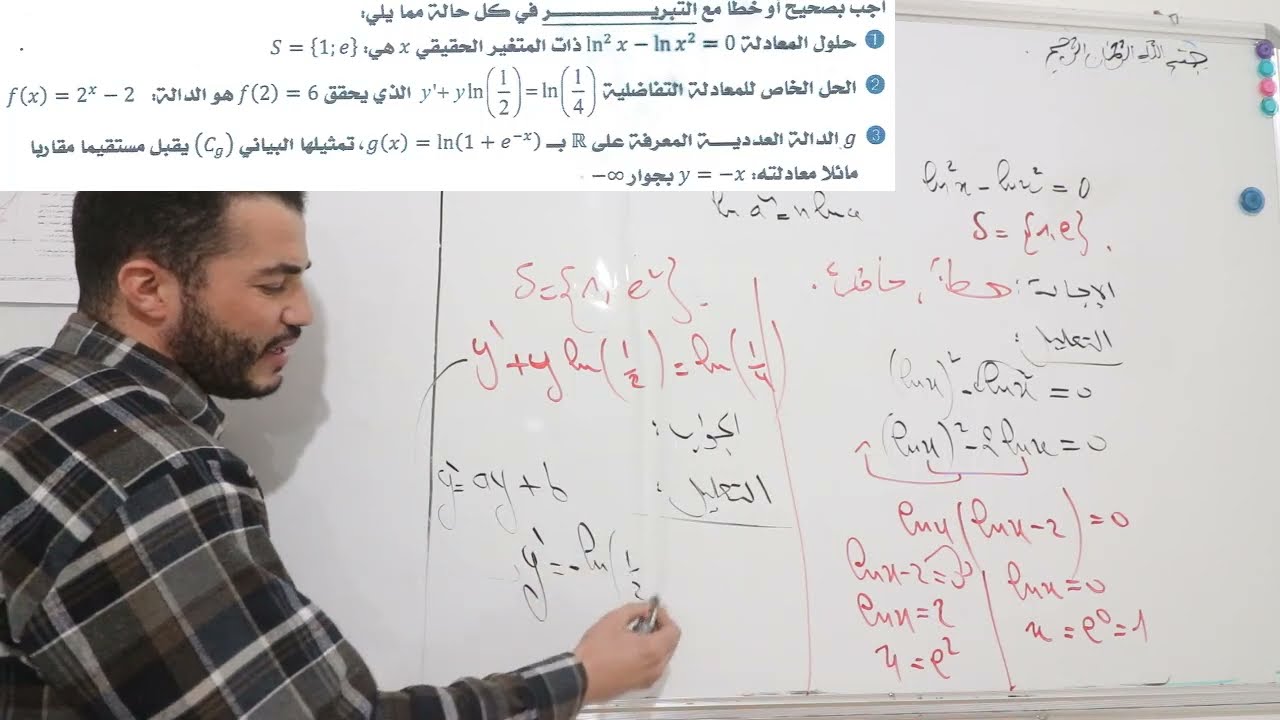 أجب بصحيح أو خطأ مع التبريـــــــر في كل حالة مما يلي:
❶ حلول المعادلة ln² x − ln x² = 0 ذات المتغير الحقيقي x هي: S = {1; e}
❷ الحل الخاص للمعادلة التفاضلية y' + y ln(1/2) = ln(1/4) الذي يحقق f(2) = 6 هو الدالة: f(x) = 2ˣ − 2
❸ g الدالة العدديـــة المعرفة على ℝ بـ g(x) = ln(1 + e⁻ˣ)، تمثيلها البياني (C_g) يقبل مستقيما مقاربا
مائلا معادلته: y = −x بجوار −∞
ln²x − ln x² = 0
S = {1, e}.
الإجابة: خطأ،
التعليل:
(ln x)² − ln x² = 0
(ln x)² − 2 ln x = 0
ln x (ln x − 2) = 0
ln x = 0
x = e⁰ = 1
ln x − 2 = 0
ln x = 2
x = e²
ln aⁿ = n ln a
S = {1, e²}.
y' + y ln(1/2) = ln(1/4)
الجواب:
التعليل:
y' = ay + b
y' = − ln(1/2